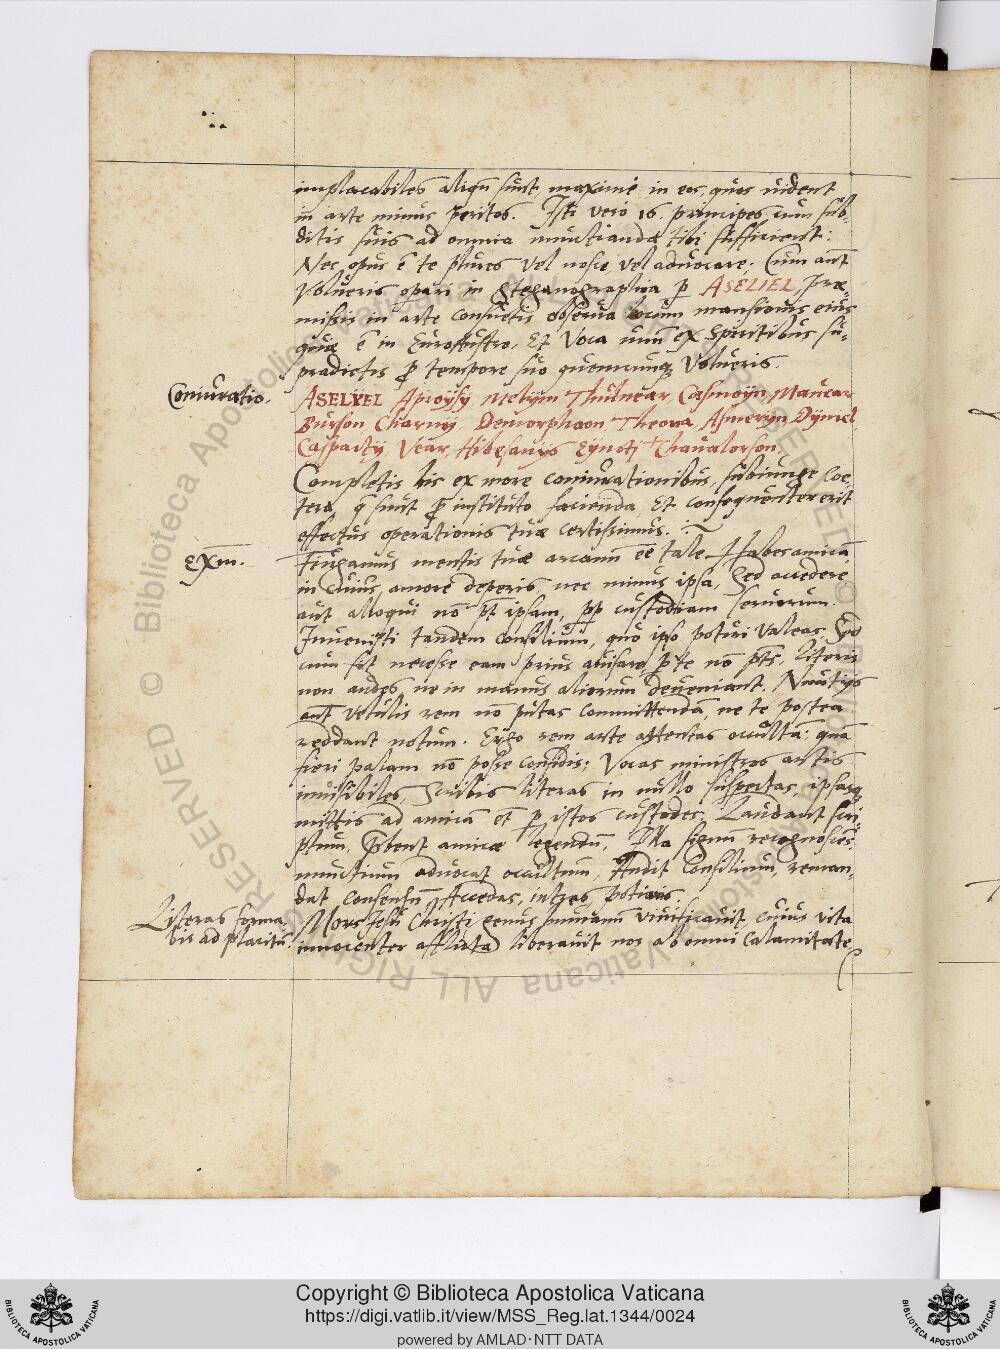 implacabiles aliqñ sunt, maximè in eos, quos uident
in arte minus peritos. Isti verò 16. principes cum sub-
ditis suis ad omnia nunctianda tibi sufficient:
Nec opus ē te plures vel nosce vel aduocare. Cum aut̄
Volueris opari in Steganographia p ASELIEL Præ-
missis in arte consuetis obserua locum mansionis eius
quæ ē in Euroaustro. Et Voca unū ex Spiritibus su-
pradictis p tempore suo quemcunq Volueris.
Coniuratio.
ASELYEL Aproysy Melym Thulnear, Casmoyn, Mauear
Burson Charny Demorphaon Theoma, Asmeryn Dyuiel,
Casponty, Vear, Hibesanys Eynoti Thaualorson.
Completis his ex more coniurationibus, subiunge cœ-
tera, q̄ sunt p instituto facienda, Et consequenter erit
effectus operationis tuæ certissimus.
exm.
Fingamus mentis tuæ arcanū eē tale. Habes amicā
in cuius amore deperis, nec minus ipsa, Sed accedere
aut alloqui nō pt ipsam, pp custodiam seruorum.
Inuenisti tandem consilium, quo ipso potiri valeas, Sed
cum sit necesse eam prius auisare, p te nō pts, literis
non audes, ne in manus aliorum deueniant. Nuntijs
aut̄ vetulis rem nō putas committendā, ne te postea
reddant notum. Ergo rem arte attentas occultā: quā
fieri palam nō posse considis: Vocas ministros artis
inuisibiles, scribis literas in nullo suspectas, ipsasq
mittis ad amicā et p istos custodes. Laudant scri-
ptum, p̄bent amicæ legendū, Illa signū recognoscēs,
nunctium aduocat occultum, Audit Consilium, reman-
dat consensū Accedas, intres, potiaris.
Literas forma-
bis ad placitū.
Mors Iesu Christi genus humanū viuificauit, cuius vita
innocenter afflicta liberauit nos ab omni calamitate
© Biblioteca Apostolica Vaticana ALL RIGHTS RESERVED
Copyright © Biblioteca Apostolica Vaticana
https://digi.vatlib.it/view/MSS_Reg.lat.1344/0024
powered by AMLAD·NTT DATA
BIBLIOTECA APOSTOLICA VATICANA
BIBLIOTECA APOSTOLICA VATICANA